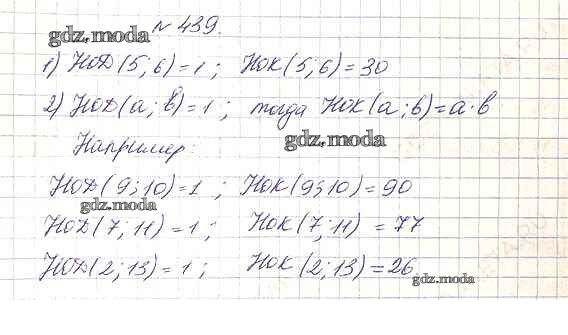 № 439.
gdz.moda
1) НОД(5; 6) = 1 ; НОК(5; 6) = 30
2) НОД(a; b) = 1 ; тогда НОК(a; b) = a · b
gdz.moda
Например:
НОД(9; 10) = 1 ; НОК(9; 10) = 90
gdz.moda
НОД(7; 11) = 1 ; НОК(7; 11) = 77
НОД(2; 13) = 1 ; НОК(2; 13) = 26
gdz.moda